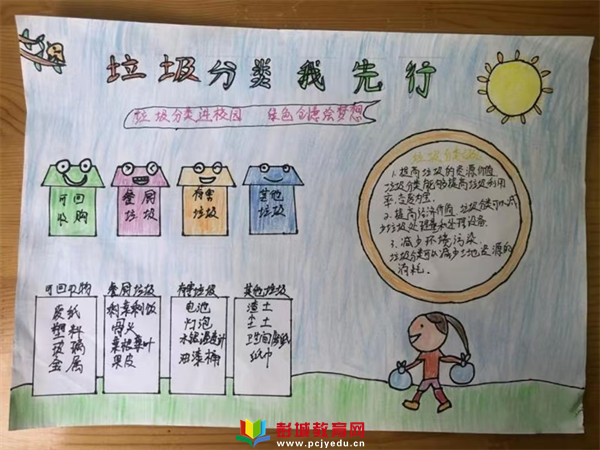 垃圾分类我先行
垃圾分类进校园 绿色创德绘梦想
可回
收购
餐厨
垃圾
有害
垃圾
其他
垃圾
垃圾分类
1.提高垃圾的资源价值
垃圾分类能够提高垃圾利用
率.变废为宝.
2.提高经济价值.垃圾分类可以减
少垃圾处理量和处理设备.
3.减少环境污染
垃圾分类可以减少土地资源的
消耗.
可回收物
餐厨垃圾
有害垃圾
其他垃圾
废纸
塑料
玻璃
金属
剩菜剩饭
骨头
菜根菜叶
果皮
电池
灯泡
水银温度计
油漆桶
渣土
尘土
卫生间废纸
纸巾
彭城教育网
www.pcjyedu.cn